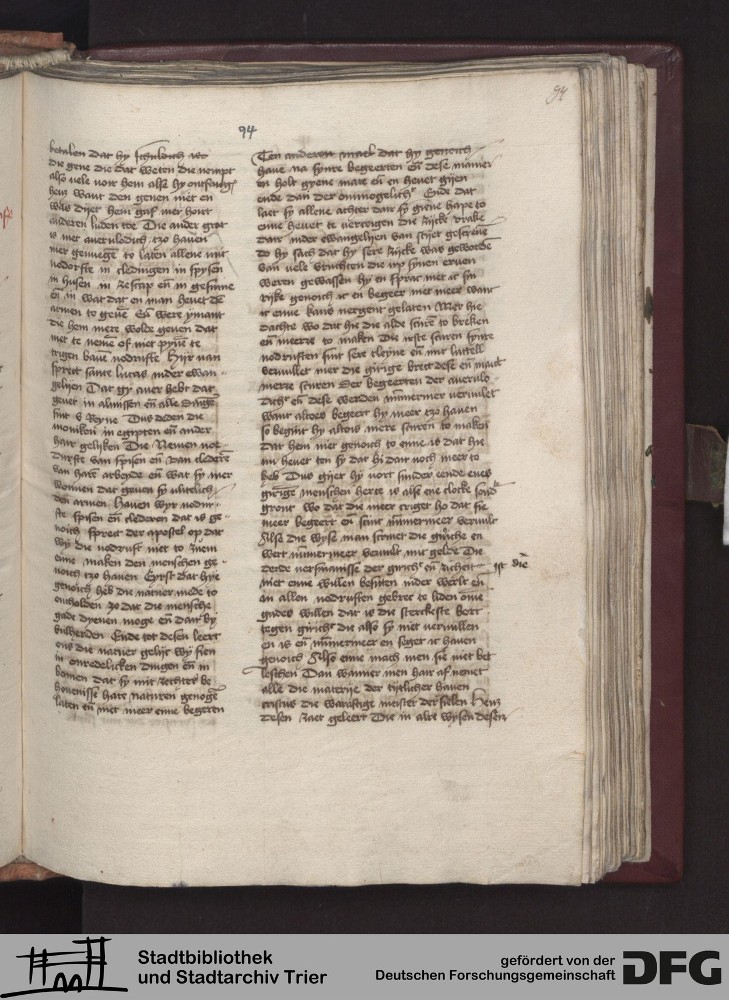 94
94
betalen dat hy schuldich is
die gene die dat weten die nempt
also vele van hem alse hy ontfenge
hem want den genen niet en
was dijet hem gaf mer hort
anderen luden toe Die ander grat
is mer auervlodich tzo hauen
mer genuege to laten allene mit
nodorfte in cledingen in spysen
in husen in
en in wat dat en man heuet den
armen to geuen En were ymant
die hem mere wolde geuen dat
niet te nemen of met pynen te
crigen bauen nodrufte Hijr van
sprect sante lucas in der ewan
gelijen Dat gy auer hebt dat
geuet in almissen en alle dinge
sint v Reyne Dus deden die
moniken in egipten en ander
hair geliken Die Nemen noe
durfte van spisen en van clederen
van haren arbeyde en wat sy mer
wonnen dat geuen sy
den armen Hauen wyr nodur
fte spisen en clederen dat is ge
noich sprect der apostel op dat
wy die nodruft niet to
enne maken den menschen ge
noich tzo hauen Eyrst dat hye
genoich heb die natuer mede to
ontholden zo dat die mensche
gade dyenen moge en dair by
bliuen Ende tot desen leert
ons die natuer gelijc wy sien
in onredelicken dingen en in
bomen dat sy mit
hare naturen genoge
laten en niet meer enne begeren
Ten anderen mael dat hy genoich
haue na synre begeerten En dese manier
en holt gyene mate en en heuet gijen
ende dan der onmogelich Ende dat
laet sy allene achter dair sy giene hape to
enne heuet te vercrigen die Rijcke vrake
dair in der ewangelijen van stijet gescreuen
do hy sach dat hy sere Rijcke was geworden
van vele vruchten die vp synen eruen
weren gewassen hy en sprac niet ic sin
rijke genoich ic en begeer niet meer want
ic enne kans nergent gelaten Mer hie
dachte wo dat hie die alde scuren to breken
en meerre to maken die irste scuren synre
nodruften sint sere cleyne en mit luttell
veruullet mer die girige breet dese en maict
merre scuren Der begeerten der auerulo
dich en dese werden nummermer veruult
want altoes begeer hy meer tzo hauen
so begint hy altois mere scuren to maken
dat hem niet genoich to enne is dat hie
nu heuet ten sy dat hi dair noch meer to
heb Dus gijet hy vort sinder eende enes
girigen menschen herte is alse ene clocke sond
gront wo dat die meer criget ho dat sie
meer begeert en sint nummermeer veruult
Alse die wyse man scriuet die giriche en
wert nummermeer veruult mit gelde Die
derde versmanisse der giricheit en Richeit ist die
niet enne willen besitten in der werlt en
in allen nodruften gebrec te liden omme
gades willen dat is die sterckeste bort
tegen girich die also sy niet verwillen
en is en nummermeer en seger ic hauen
genoich Also enne mach men sie niet bet
leschen Dan wanner men hair af nemet
alle die materije der tijtlicher hauen
cristus die warastige meister der sielen Heuz
desen Raet geleert Die in alre wysen desen
Stadtbibliothek
und Stadtarchiv Trier
gefördert von der
Deutschen Forschungsgemeinschaft
DFG